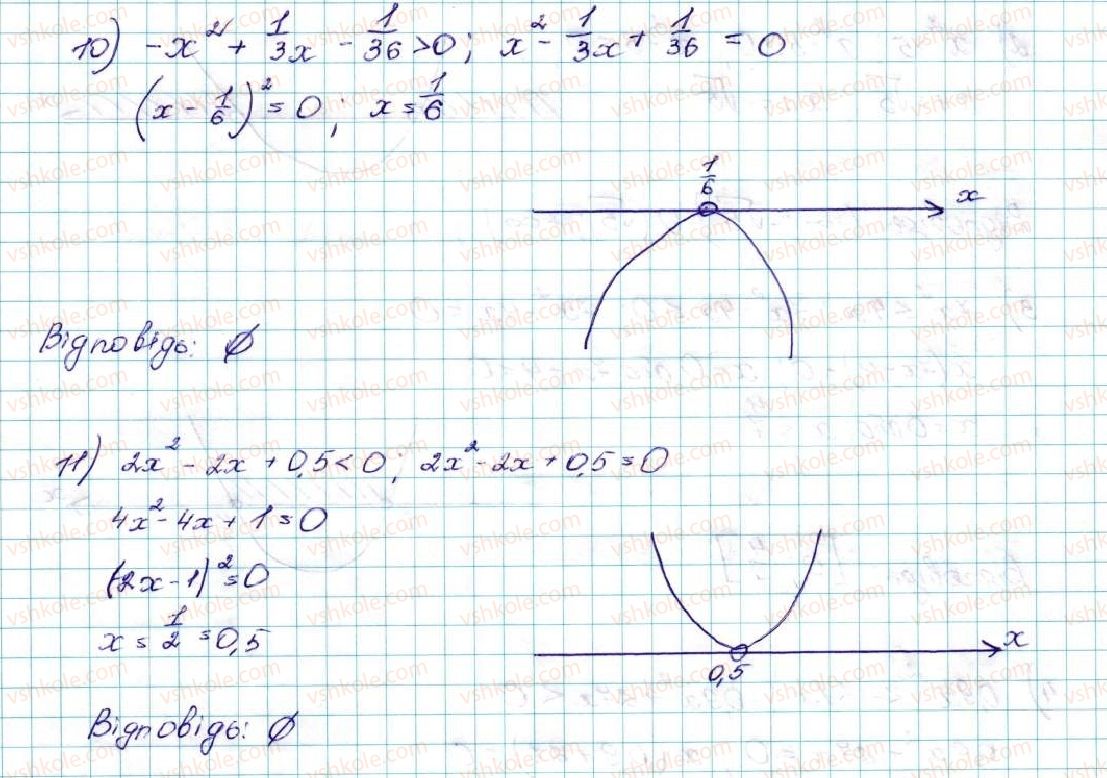 10) -x² + 1/3 x - 1/36 > 0; x² - 1/3 x + 1/36 = 0
(x - 1/6)² = 0; x = 1/6
1/6
x
Відповідь: ∅
11) 2x² - 2x + 0,5 < 0; 2x² - 2x + 0,5 = 0
4x² - 4x + 1 = 0
(2x - 1)² = 0
x = 1/2 = 0,5
x
0,5
Відповідь: ∅
vshkole.com